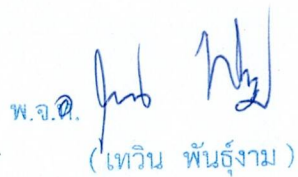 พ.จ.อ.
(เทวิน พันธุ์งาม)